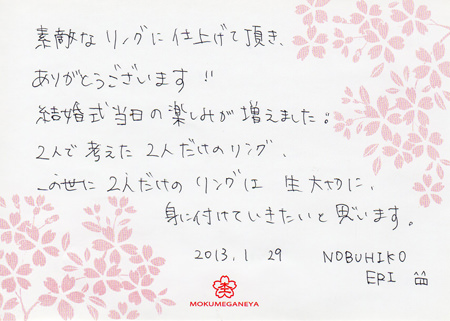 素敵なリングに仕上げて頂き、
ありがとうございます!!
結婚式当日の楽しみが増えました。
2人で考えた2人だけのリング、
この世に2人だけのリングは 一生大切に、
身に付けていきたいと思います。
2013.1 29 NOBUHIKO
ERI
MOKUMEGANEYA